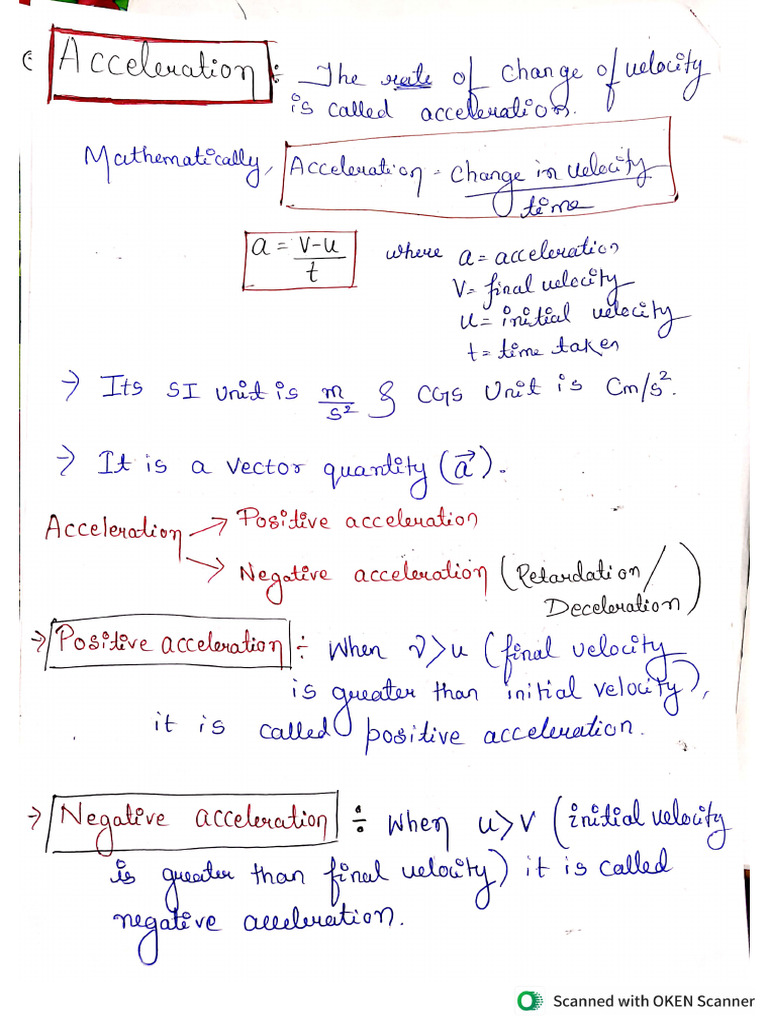 Acceleration ÷ The rate of change of velocity
is called acceleration.
Mathematically, Acceleration = Change in velocity
time
a = v-u
t
where a = acceleration
V = final velocity
u = initial velocity
t = time taken
→ Its SI Unit is m/s² & CGS Unit is Cm/s².
→ It is a vector quantity (a⃗).
Acceleration → Positive acceleration
→ Negative acceleration (Retardation/
Deceleration)
→ Positive acceleration ÷ When v>u (final velocity
is greater than initial velocity),
it is called positive acceleration.
→ Negative acceleration ÷ When u>v (initial velocity
is greater than final velocity) it is called
negative acceleration.
Scanned with OKEN Scanner